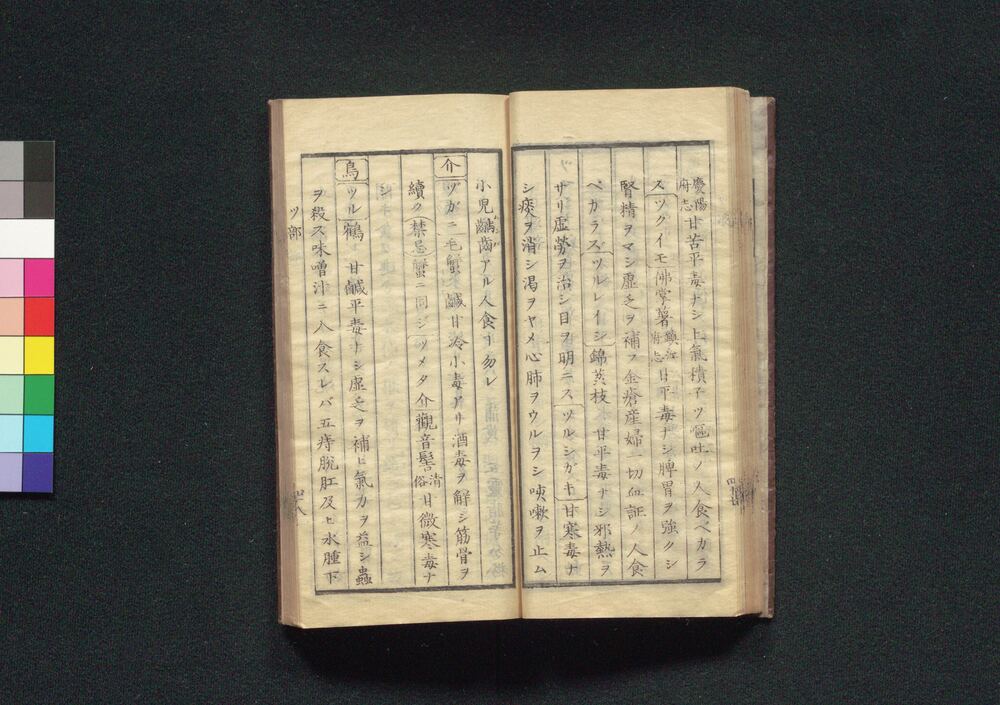 慶陽府志甘苦平毒ナシ上氣積子ツ嘔吐ノ人食ベカラ
ズツクイモ佛掌薯鎭江府志甘平毒ナシ脾胃ヲ強クシ
腎精ヲマシ虚乏ヲ補フ金瘡産婦一切血証ノ人食
ベカラズツルレイシ錦茘枝甘平毒ナシ邪熱ヲ
サリ虚勞ヲ治シ目ヲ明ニスツルシガキ甘寒毒ナ
シ痰ヲ消シ渇ヲヤメ心肺ヲウルヲシ咳嗽ヲ止ム
小児齲歯アル人食フ勿レ
介ヅガニ毛蟹鹹甘冷小毒アリ酒毒ヲ解シ筋骨ヲ
續ク禁忌蟹ニ同ジツメタ介觀音髻清俗甘微寒毒ナ
シ
鳥ツル鶴甘鹹平毒ナシ虚乏ヲ補ヒ氣力ヲ益シ蟲
ヲ殺ス味噌汁ニ入食スレバ五痔脱肛及ヒ水腫下
ツ部
四十八